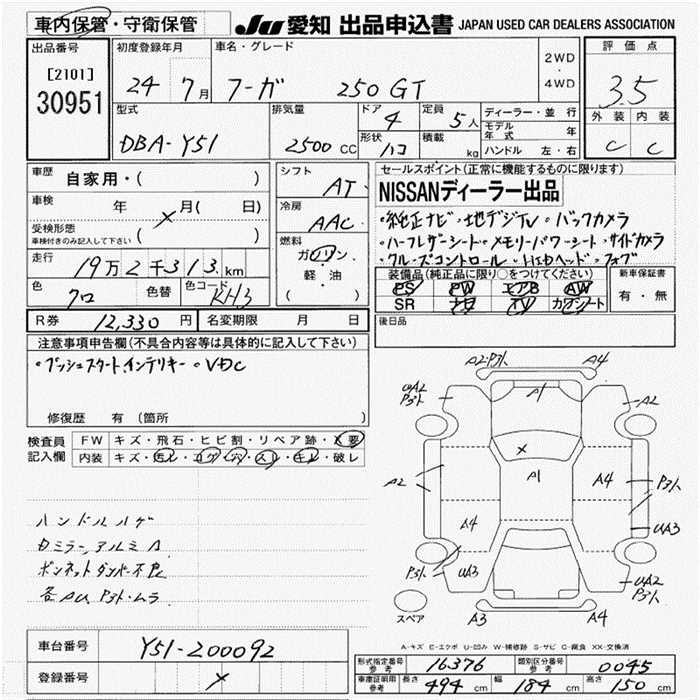 車内保管・守衛保管
JU 愛知 出品申込書 JAPAN USED CAR DEALERS ASSOCIATION
出品番号
[2101]
30951
初度登録年月
24 7月
車名・グレード
フーガ 250GT
2WD
・
4WD
評価点
3.5
外装 内装
C C
型式
DBA-Y51
排気量
2500 CC
ドア
4
形状
ハコ
定員
5人
積載
kg
ディーラー・並行
モデル年式 年
ハンドル 左・右
車歴
自家用・( )
車検
年 月( 日)
受検形態
車検付きのみ記入して下さい ( )
走行
19万2千313km
色
クロ
色替
色コード
KH3
シフト
AT
冷房
AAC
燃料
ガソリン
軽・油
( )
セールスポイント(正常に機能するものに限ります)
NISSANディーラー出品
・純正ナビ・地デジTV・バックカメラ
・ハーフレザーシート・メモリーパワーシート・サイドカメラ
・クルーズコントロール・HIDヘッド・フォグ
装備品(純正品に限り○をつけてください)
PS PW エアB AW
SR ナビ TV カワシート
新車保証書
有・無
R券 12,330円 名変期限 月 日
後日品
注意事項申告欄(不具合内容等は具体的に記入して下さい)
・プッシュスタート、インテリキー・VDC
修復歴 有(箇所
検査員記入欄
FW キズ・飛石・ヒビ割・リペア跡・X要
内装 キズ・汚レ・コゲ・穴・スレ・キレ・破レ
ハンドルハゲ
カミラー、アルミA
ボンネットダンパー不良
各AU P3ト・ムラ
A2・P3ト A4
UA2
P3ト
A1
A2
X
A1
A2
A4
P3ト
A4
UA3
P3ト
UA3
UA2
P3ト
A3
A4
スペア
A-キズ E-エクボ U-凹み W-補修跡 S-サビ C-腐食 XX-交換済
車台番号 Y51-200092
登録番号
形式指定番号参考 16376 類別区分番号参考 0045
車庫証明用参考 長さ 494cm 幅 184cm 高さ 150cm